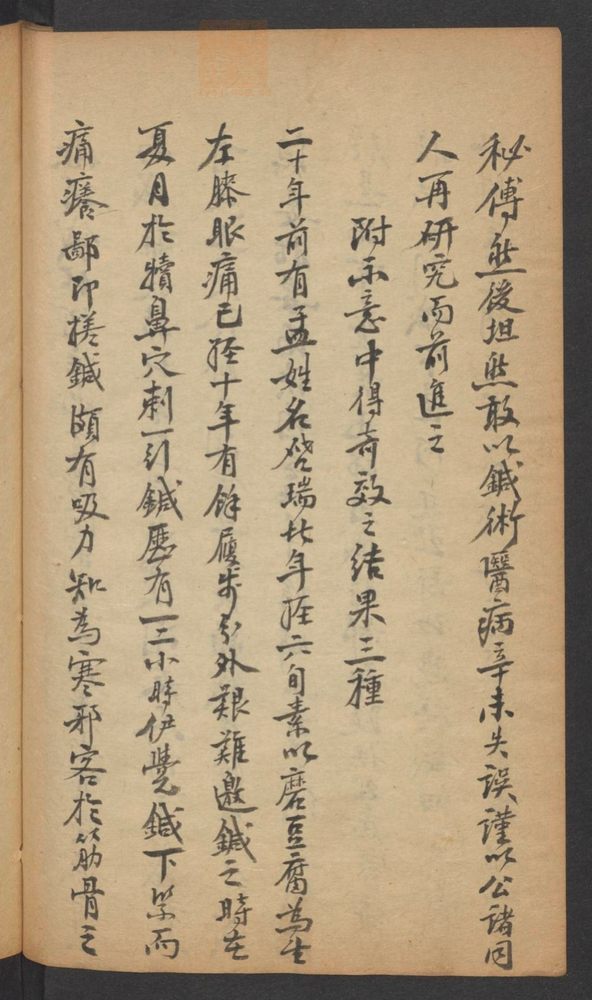 秘傳然後坦然敢以鍼術醫病幸未失誤謹以公諸同
人再研究而前進之
附不意中得奇效之結果三種
二十年前有孟姓名啓瑞北年在六旬素以磨豆腐為生
左膝眼痛已經十年有餘履步分外艱難邀鍼之時在
夏月於犢鼻穴刺一引鍼歷有一二小時伊覺鍼下緊而
痛癢鄙即搓鍼頗有吸力知為寒邪客於筋骨之